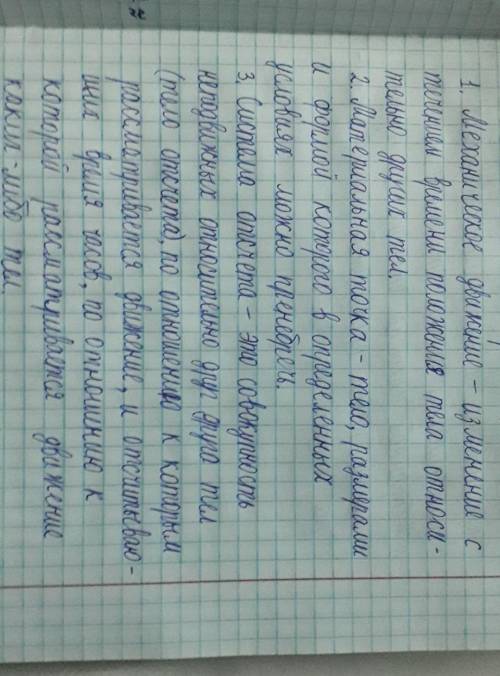 1. Механическое движение - изменение с
течением времени положения тела относи-
тельно других тел.
2. Материальная точка - тело, размерами
и формой которого в определенных
условиях можно пренебречь.
3. Система отсчета - это совокупность
неподвижных относительно друг друга тел
(тело отсчета), по отношению к которым
рассматривается движение, и отсчитываю-
щих время часов, по отношению к
которой рассматривается движение
каких-либо тел.